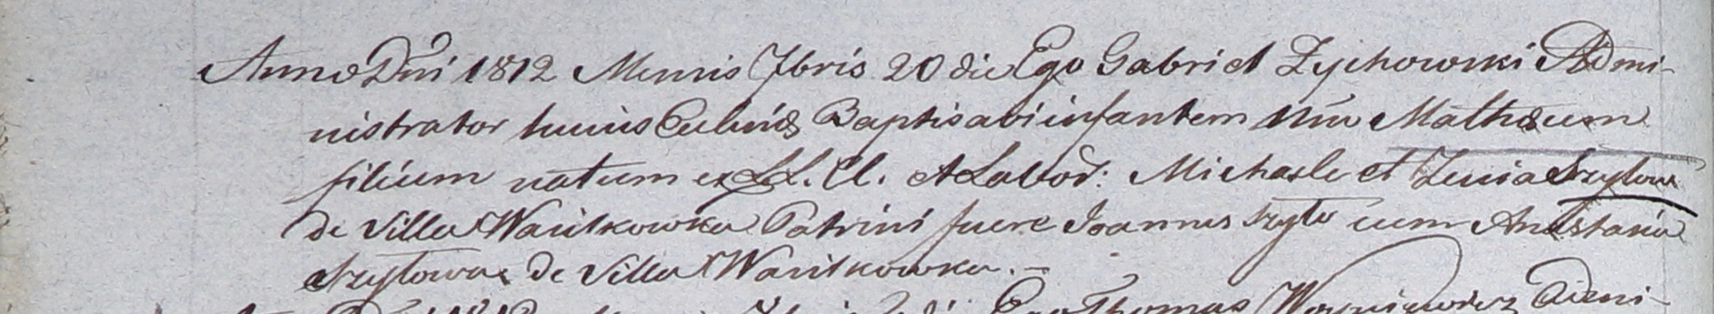 Anno Dni 1812 Mensis 7bris 20 die Ego Gabriel Zychowski Admi-
nistrator huius Baptisavi infantem Mathæum
filium natum ex LL. et Michaele et Szylow
de Villa Wasilkowka Patrini fuere Joannes Szyło cum Anastasia
Szyłowa de Villa Wasilkowka. -
Ego Thomas